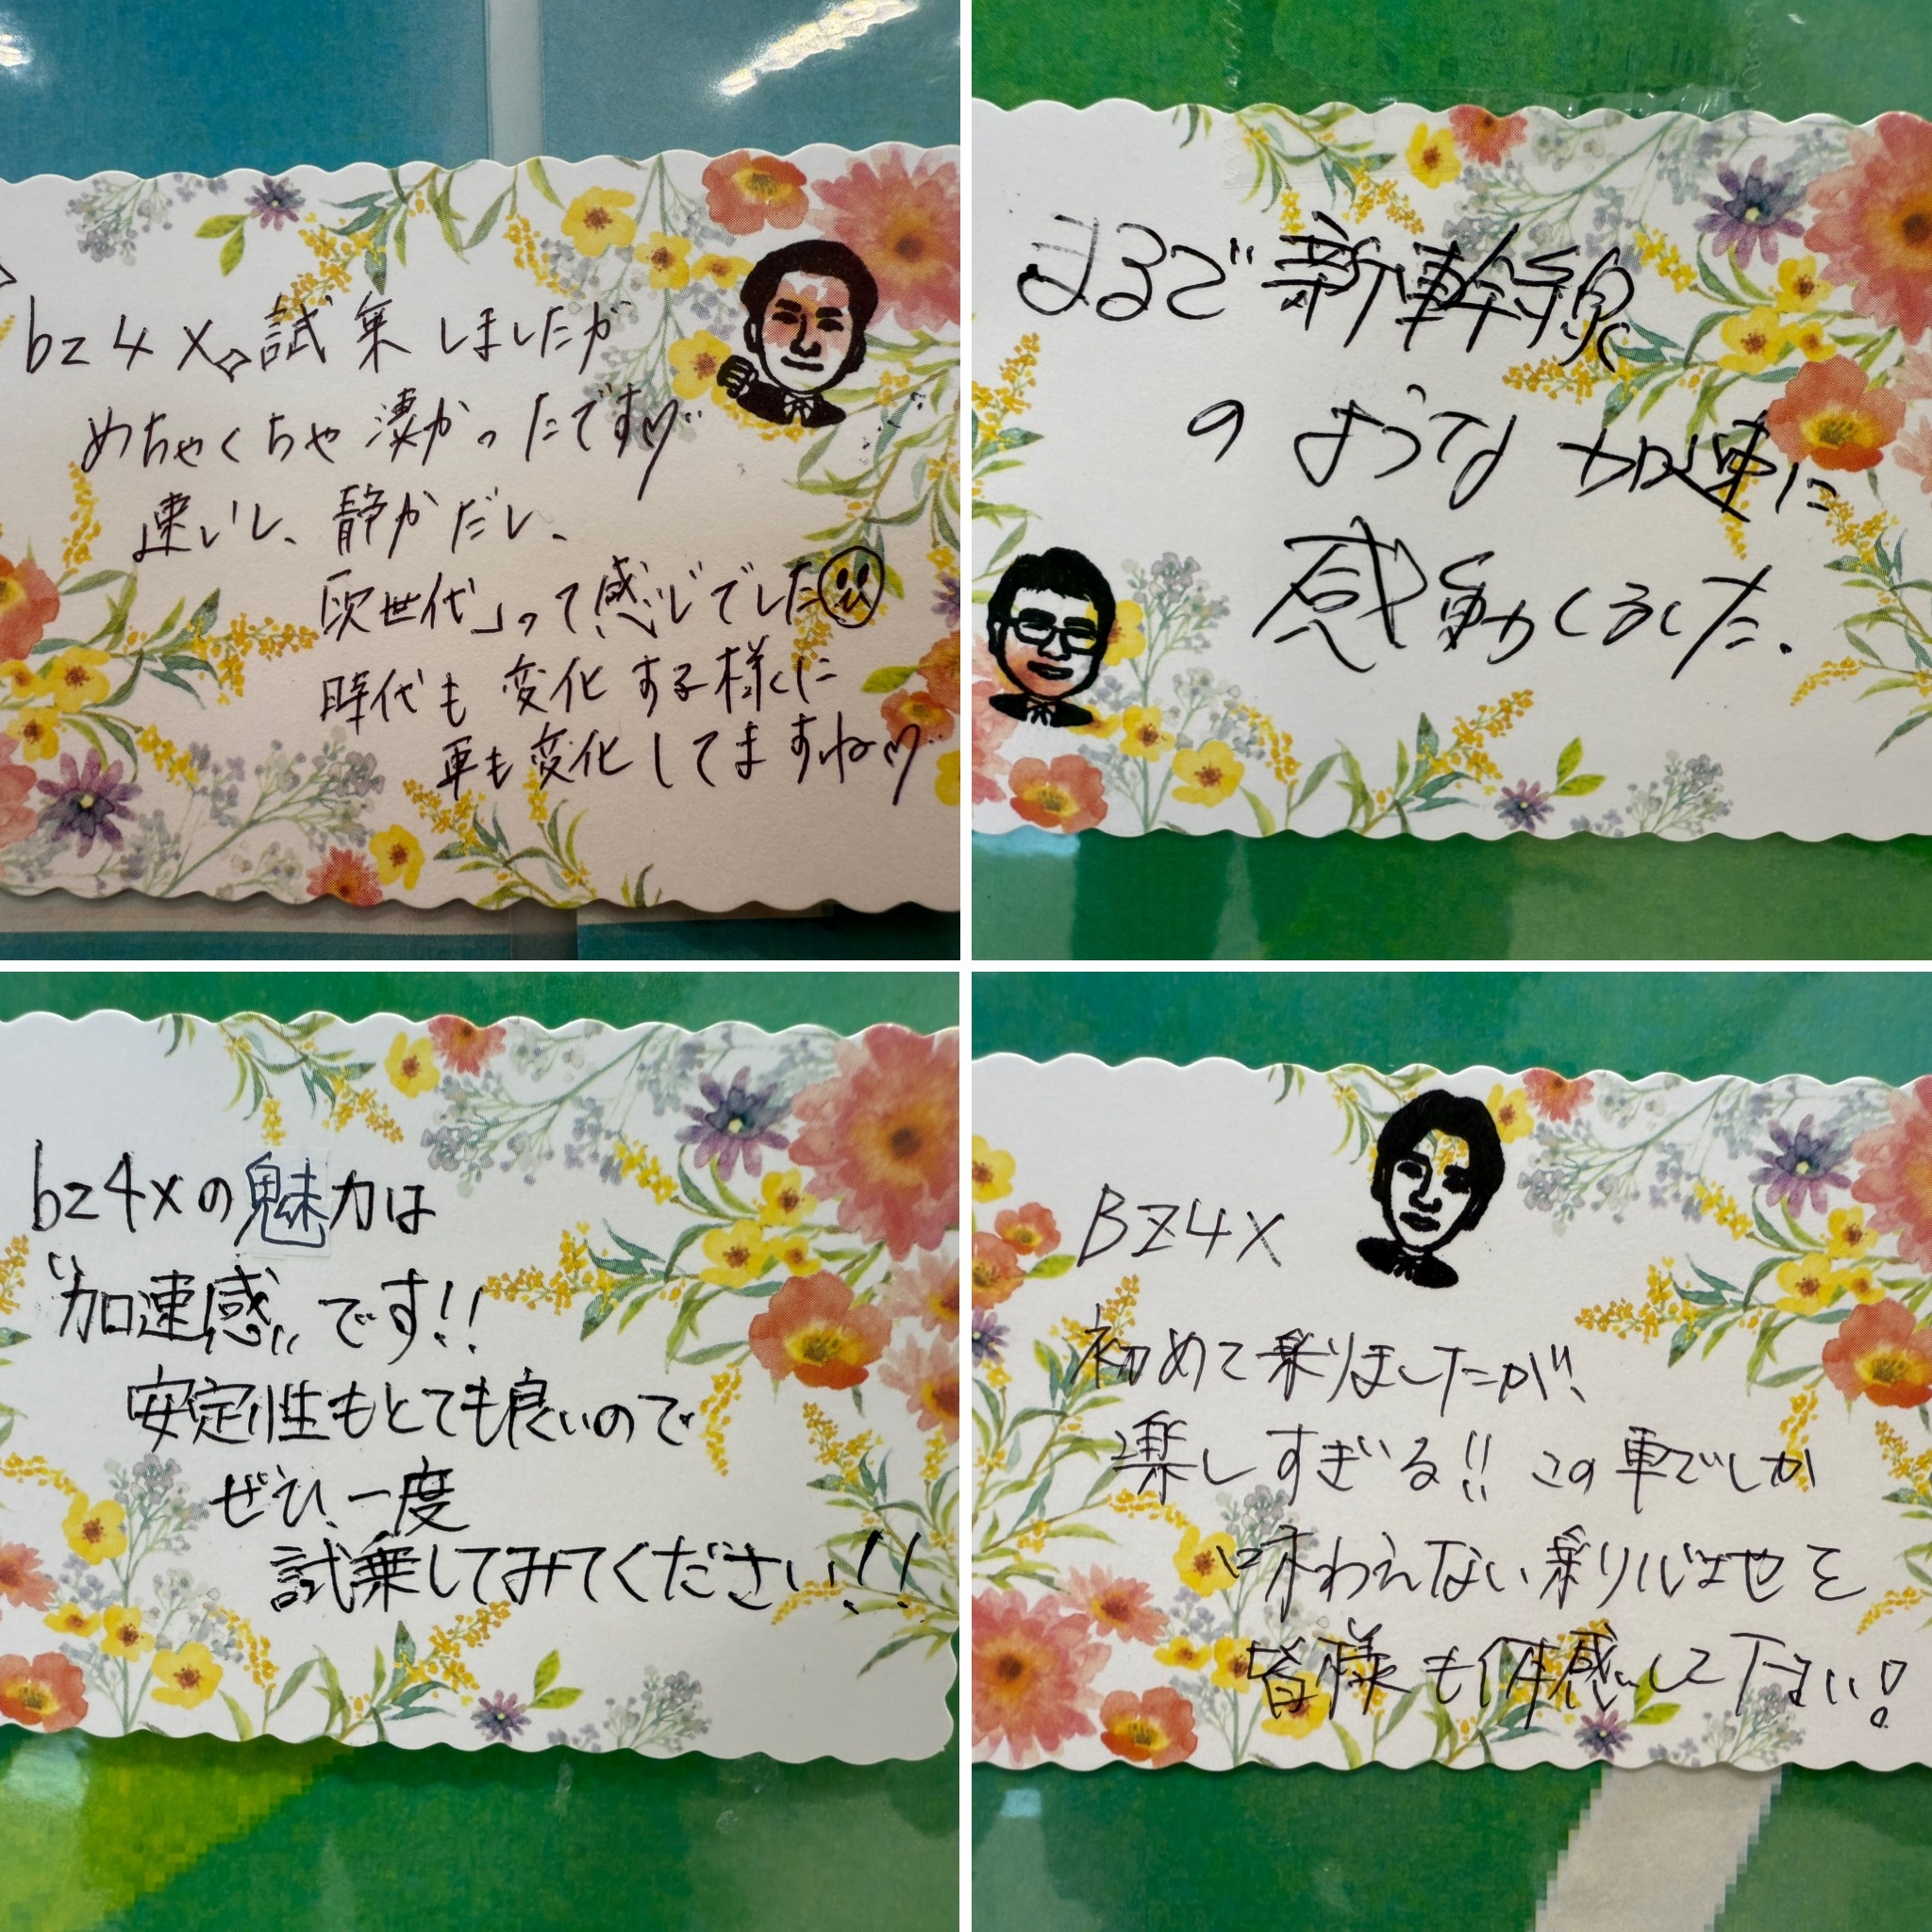 bz4x 試乗しましたが
めちゃくちゃ凄かったです♡
速いし、静かだし、
「次世代」って感じでした
時代も変化する様に
車も変化してますね♡
まるで新幹線
のような加速に
感動しました.
bz4xの魅力は
"加速感"です!!
安定性もとても良いので
ぜひ一度
試乗してみてください!!
BZ4X
初めて乗りましたが!
楽しすぎいる!! この車でしか
味わえない乗り心地を
皆様も体感して下さい!